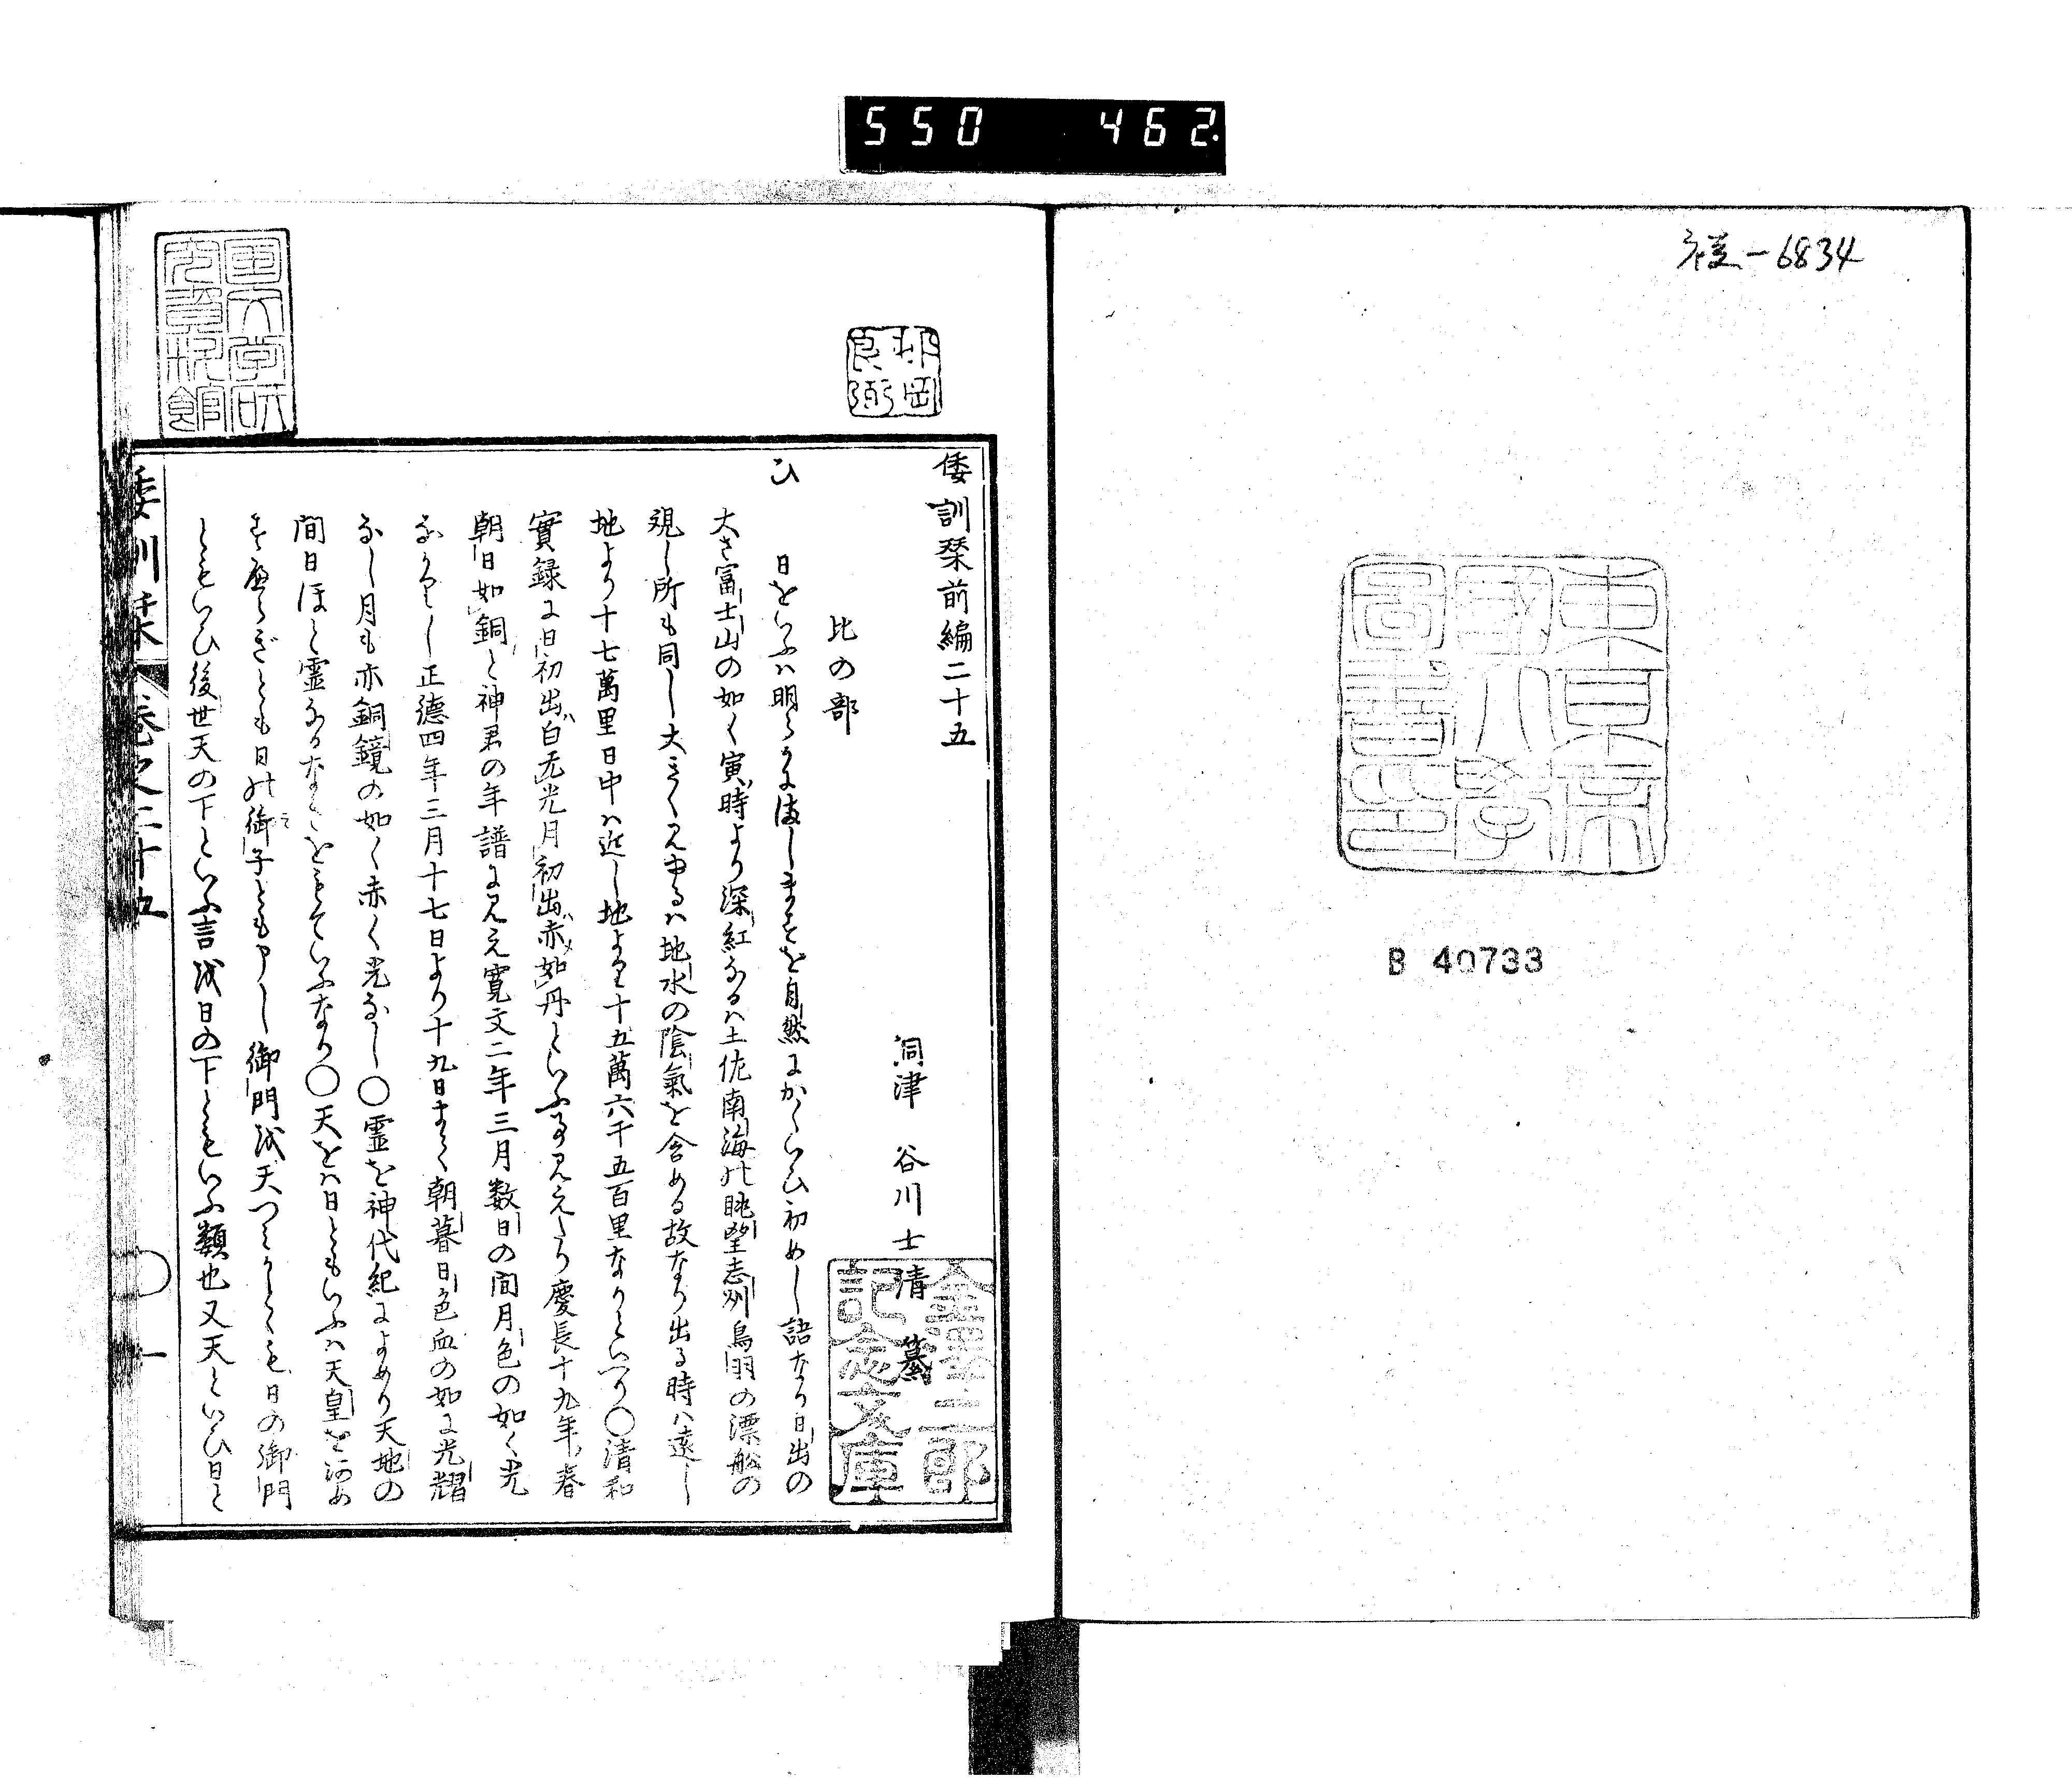 550 462
6834
東京帝國大學圖書印
B 40733
国文学研究資料館
邨岡良弼
倭訓栞前編二十五
洞津 谷川士清 纂
金澤庄三郎記念文庫
比の部
ひ
日をいふハ明らかに
自然にかくいひ初めし語なり日出の
大さ富士山の如く寅時より深紅なるハ土佐南海の眺望志州鳥羽の漂舩の
視し所も同し大きく見ゆるハ地水の陰氣を含める故なり出る時ハ遠し
地より十七萬里日中ハ近し地より十五萬六千五百里なりといへり〇清和
實録に日初出白无光月初出赤如丹といふ事見えたり慶長十九年春
朝日如銅と神君の年譜に見え寛文二年三月数日の間月色の如く光
なかりし正德四年三月十七日より十九日まて朝暮日色血の如に光耀
なし月も亦銅鏡の如く赤く光なし〇霊を神代紀によめり天地の
間日ほと霊なるなきをもていふなり〇天をハ日ともいふハ天皇を
すべらぎとも日の御子とも申し御門を天つみかとも日の御門
ともいひ後世天の下といふ言を日の下ともいふ類也又天といひ日と
倭訓栞 卷之二十五 〇 一